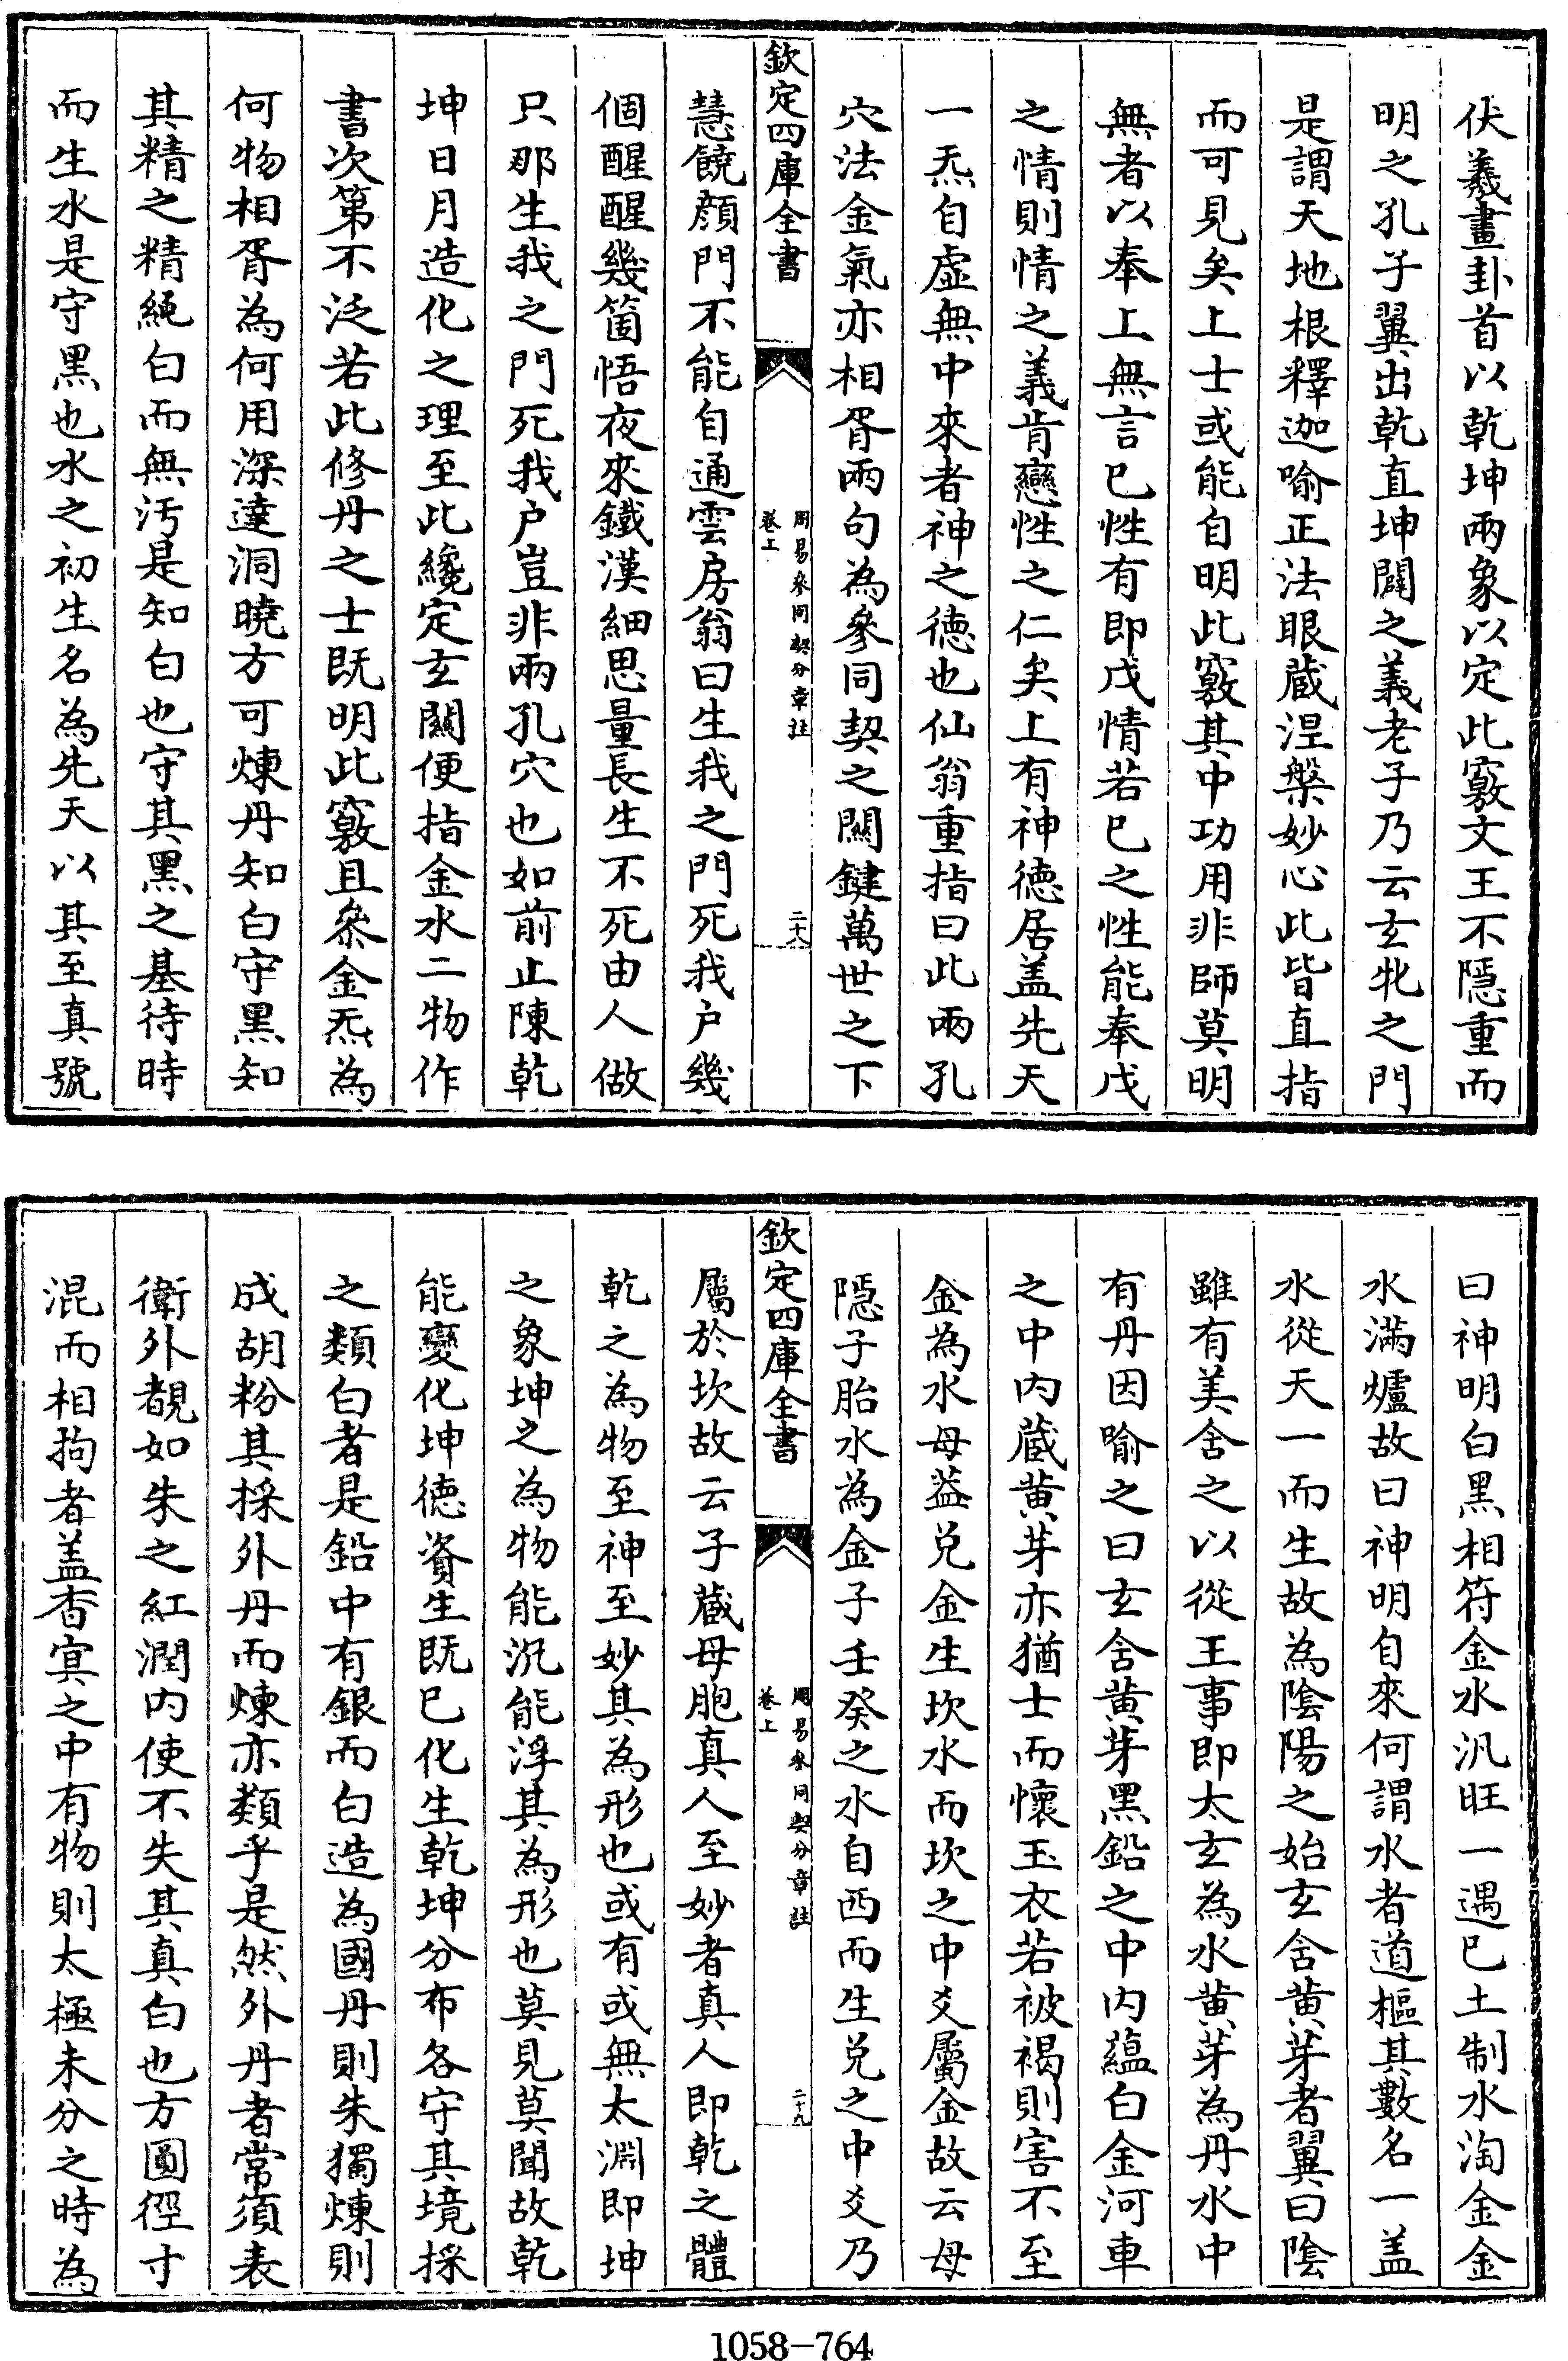 伏羲畫卦首以乾坤兩象以定此竅文王不隱重而
明之孔子翼出乾直坤闢之義老子乃云玄牝之門
是謂天地根釋迦喻正法眼蔵涅槃妙心此皆直指
而可見矣上士或能自明此竅其中功用非師莫明
無者以奉上無言巳性有即戊情若巳之性能奉戊
之情則情之義肯戀性之仁矣上有神德居盖先天
一炁自虚無中來者神之德也仙翁重指曰此兩孔
穴法金氣亦相胥兩句為參同契之闗鍵萬世之下
欽定四庫全書
周易參同契分章註
卷上
二十八
慧饒顔門不能自通雲房翁曰生我之門死我户幾
個醒醒幾箇悟夜來鐵漢細思量長生不死由人做
只那生我之門死我户豈非兩孔穴也如前止陳乾
坤日月造化之理至此纔定玄闗便指金水二物作
書次第不泛若此修丹之士既明此竅且叅金炁為
何物相胥為何用深達洞曉方可煉丹知白守黑知
其精之精純白而無汚是知白也守其黑之基待時
而生水是守黑也水之初生名為先天以其至真號
曰神明白黑相符金水汎旺一遇巳土制水淘金金
水滿爐故曰神明自來何謂水者道樞其數名一盖
水從天一而生故為陰陽之始玄含黄芽者翼曰陰
雖有美含之以從王事即太玄為水黄芽為丹水中
有丹因喻之曰玄含黄芽黑鉛之中内蘊白金河車
之中内蔵黄芽亦猶士而懷玉衣若被褐則害不至
金為水母葢兑金生坎水而坎之中爻屬金故云母
隱子胎水為金子壬癸之水自西而生兑之中爻乃
欽定四庫全書
周易參同契分章註
卷上
二十九
屬於坎故云子蔵母胞真人至妙者真人即乾之體
乾之為物至神至妙其為形也或有或無太淵即坤
之象坤之為物能沉能浮其為形也莫見莫聞故乾
能變化坤德資生既巳化生乾坤分布各守其境採
之類白者是鉛中有銀而白造為國丹則朱獨煉則
成胡粉其採外丹而煉亦類乎是然外丹者常須表
衛外覩如朱之紅潤内使不失其真白也方圓徑寸
混而相拘者盖杳㝠之中有物則太極未分之時為
1058-764